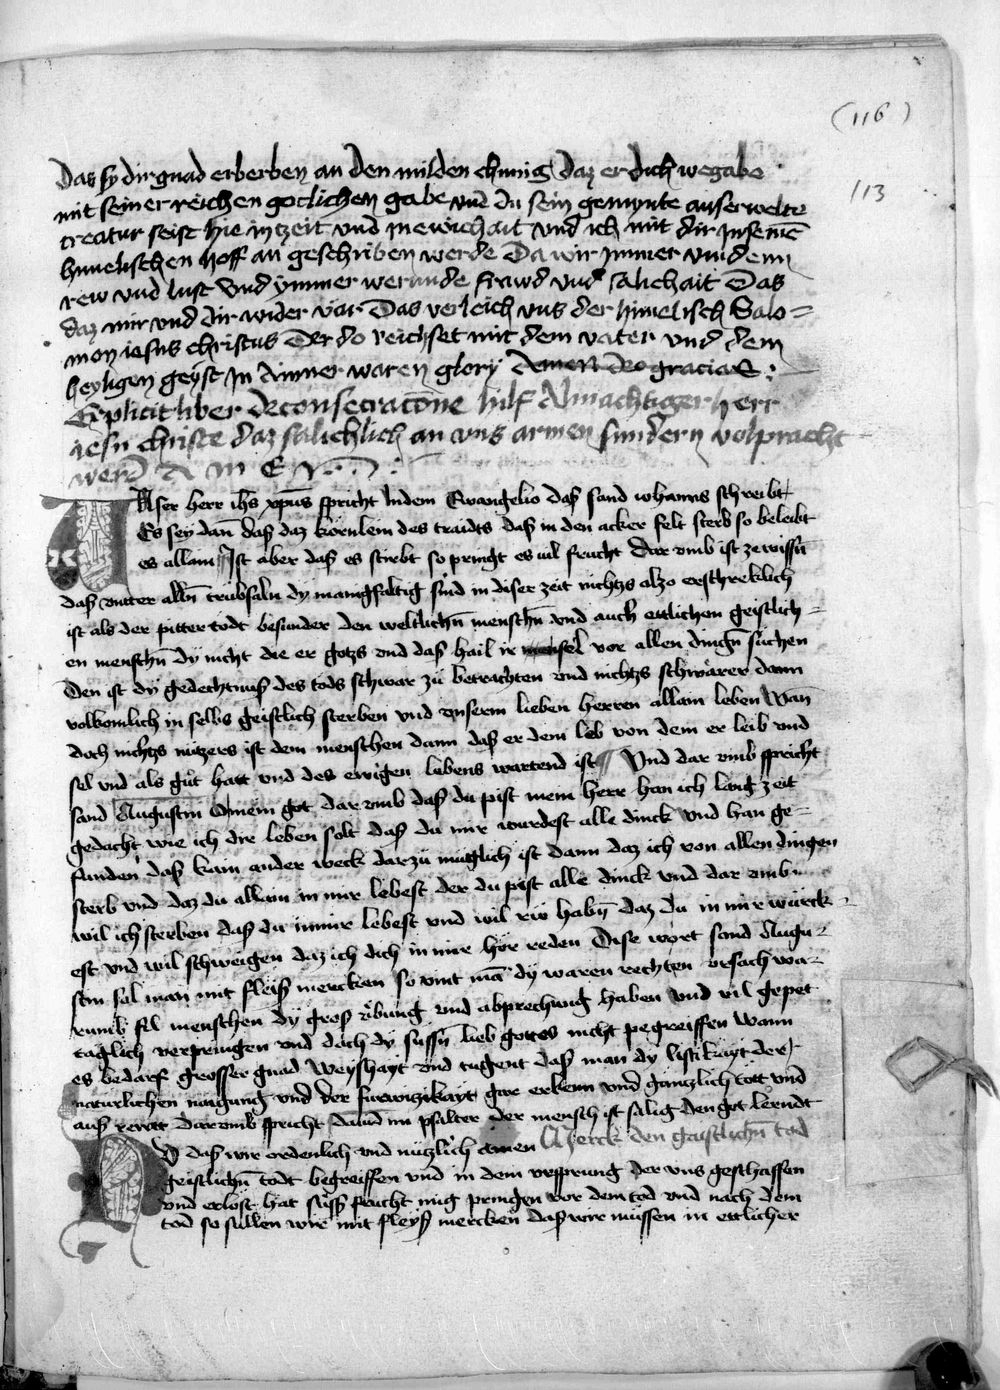 (116)
113
Das sy dir gnad erberben an den milden chunig daz er dich wegabe
mit seiner reichen gotlichen gabe vnd du sein gemynte auserwelte
creatur seist hie in zeit vnd in ewichait vnd ich mit dir in seinē
himelischen hoff an geschriben werde Da wir jmmer vinden
rew vnd lust vnd ymmer werunde frawd vnd salichait Das
daz mir vnd dir wider var Das verleich vns der himelisch Salo=
mon iesus christus Der do reichset mit dem vater vnd dem
heyligen geyst In ainner waren glory Amen deo gracias :
Explicit liber de consecracōne hilf Almachtiger herr
iesu christe daz salichlich an vns armen sundern volpracht
werd A M E N
Unser herr ihs xp̄us spricht in dem Ewangelio daß sand iohanns schreibt
Es sey dan̄ daß daz körnlein des traidts daß in den acker felt sterb so beleibt
es allain Ist aber daß es stirbt so pringt es vil frucht Dar vmb ist zewissn̄
daß vntter alln̄ trubsaln dy manigfaltig sind in diser zeit nichtzs alzo erschreklich
ist als der pitter todt besunder den weltlichn̄ menschn̄ vnd auch ettlichen geistlich=
en menschn̄ dy nicht die er gotzs vnd daß hail ir sel vor allen dingn̄ suchen
Den ist dy gedechtnuß des tods schwar zu betrachten vnd nichtzs schwärer dann
volkomlich in selbs geistlich sterben vnd vnserm lieben herren allain leben Wan̄
doch nichtzs nutzers ist dem menschen dann daß er dem leb von dem er leib vnd
sel vnd als gut hatt vnd des ewigen lebens wartend ist Vnd dar vmb spricht
sand Augustin O mein got dar vmb daß du pist mein herr han ich lang zeit
gedacht wie ich dir leben solt daß du mir wurdest alle dinck vnd han ge=
funden daß kain ander weck darzu muglich ist dann daz ich von allen dingen
sterb vnd daz du allain in mir lebest der du pist alle dinck vnd dar vmb
wil ich sterben daß du in mir lebest vnd wil rüe habn̄ daz du in mir würck=
est vnd wil schweigen daz ich dich in mir hör reden Dise wort sand Augu=
stin sol man mit fleiß mercken so vint mā dy waren rechten vrsach wa=
rumb fil menschen dy groß vbung vnd abprechung haben vnd vil gepet
taglich verpringen vnd doch dy sussn̄ lieb gottes nicht pegreiffen Wann
es bedarf grosser gnad weyshayt vnd tugent daß man dy listikayt der
naturlichen naigung vnd der furwiczikayt gar erkenn vnd gantzlich tött vnd
auß rewtt Dar vmb spricht dauid im psalter der mensch ist salig den got lerndt
Merck den gaistlichn̄ tod
Vd daß wir ordenlich vnd nützlich amen
geistlichn̄ todt begreiffen vnd in dem vrsprung der vns geschaffen
vnd erlost hat suß frucht mug pringen vor dem tod vnd nach dem
tod so sullen wir mit fleyß mercken daß wir müssen in ettlicher